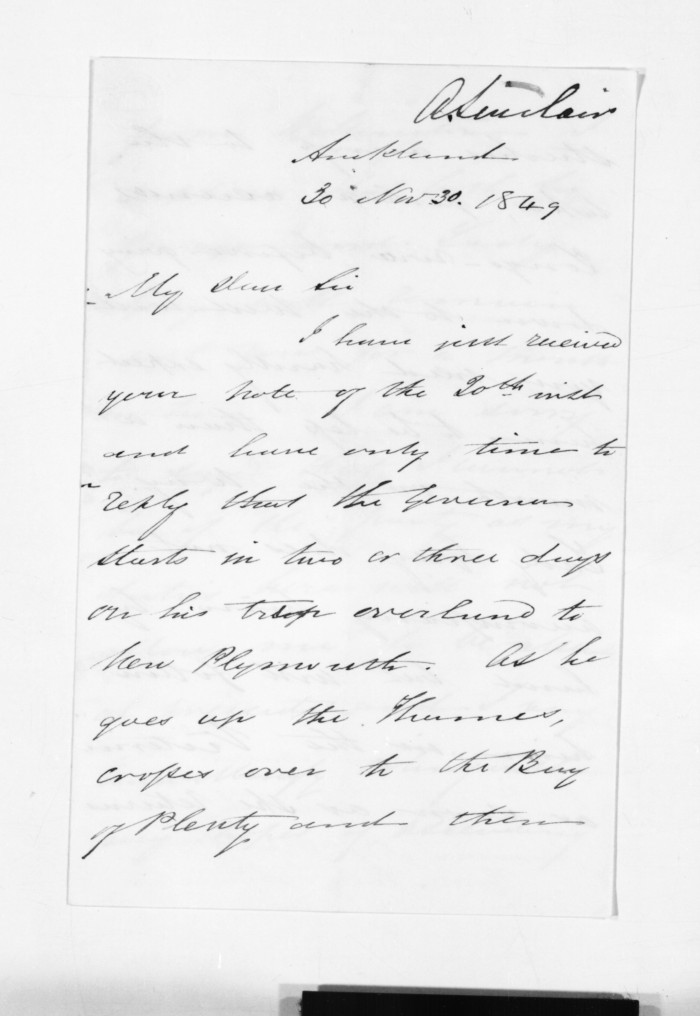 A. Sinclair
Auckland
30 Nov 30. 1849
My dear Sir
I have just received
your note of the 20th inst
and have only time to
reply that the Governor
starts in two or three days
on his trip overland to
New Plymouth. As he
goes up the Thames,
crosses over to the Bay
of Plenty and then